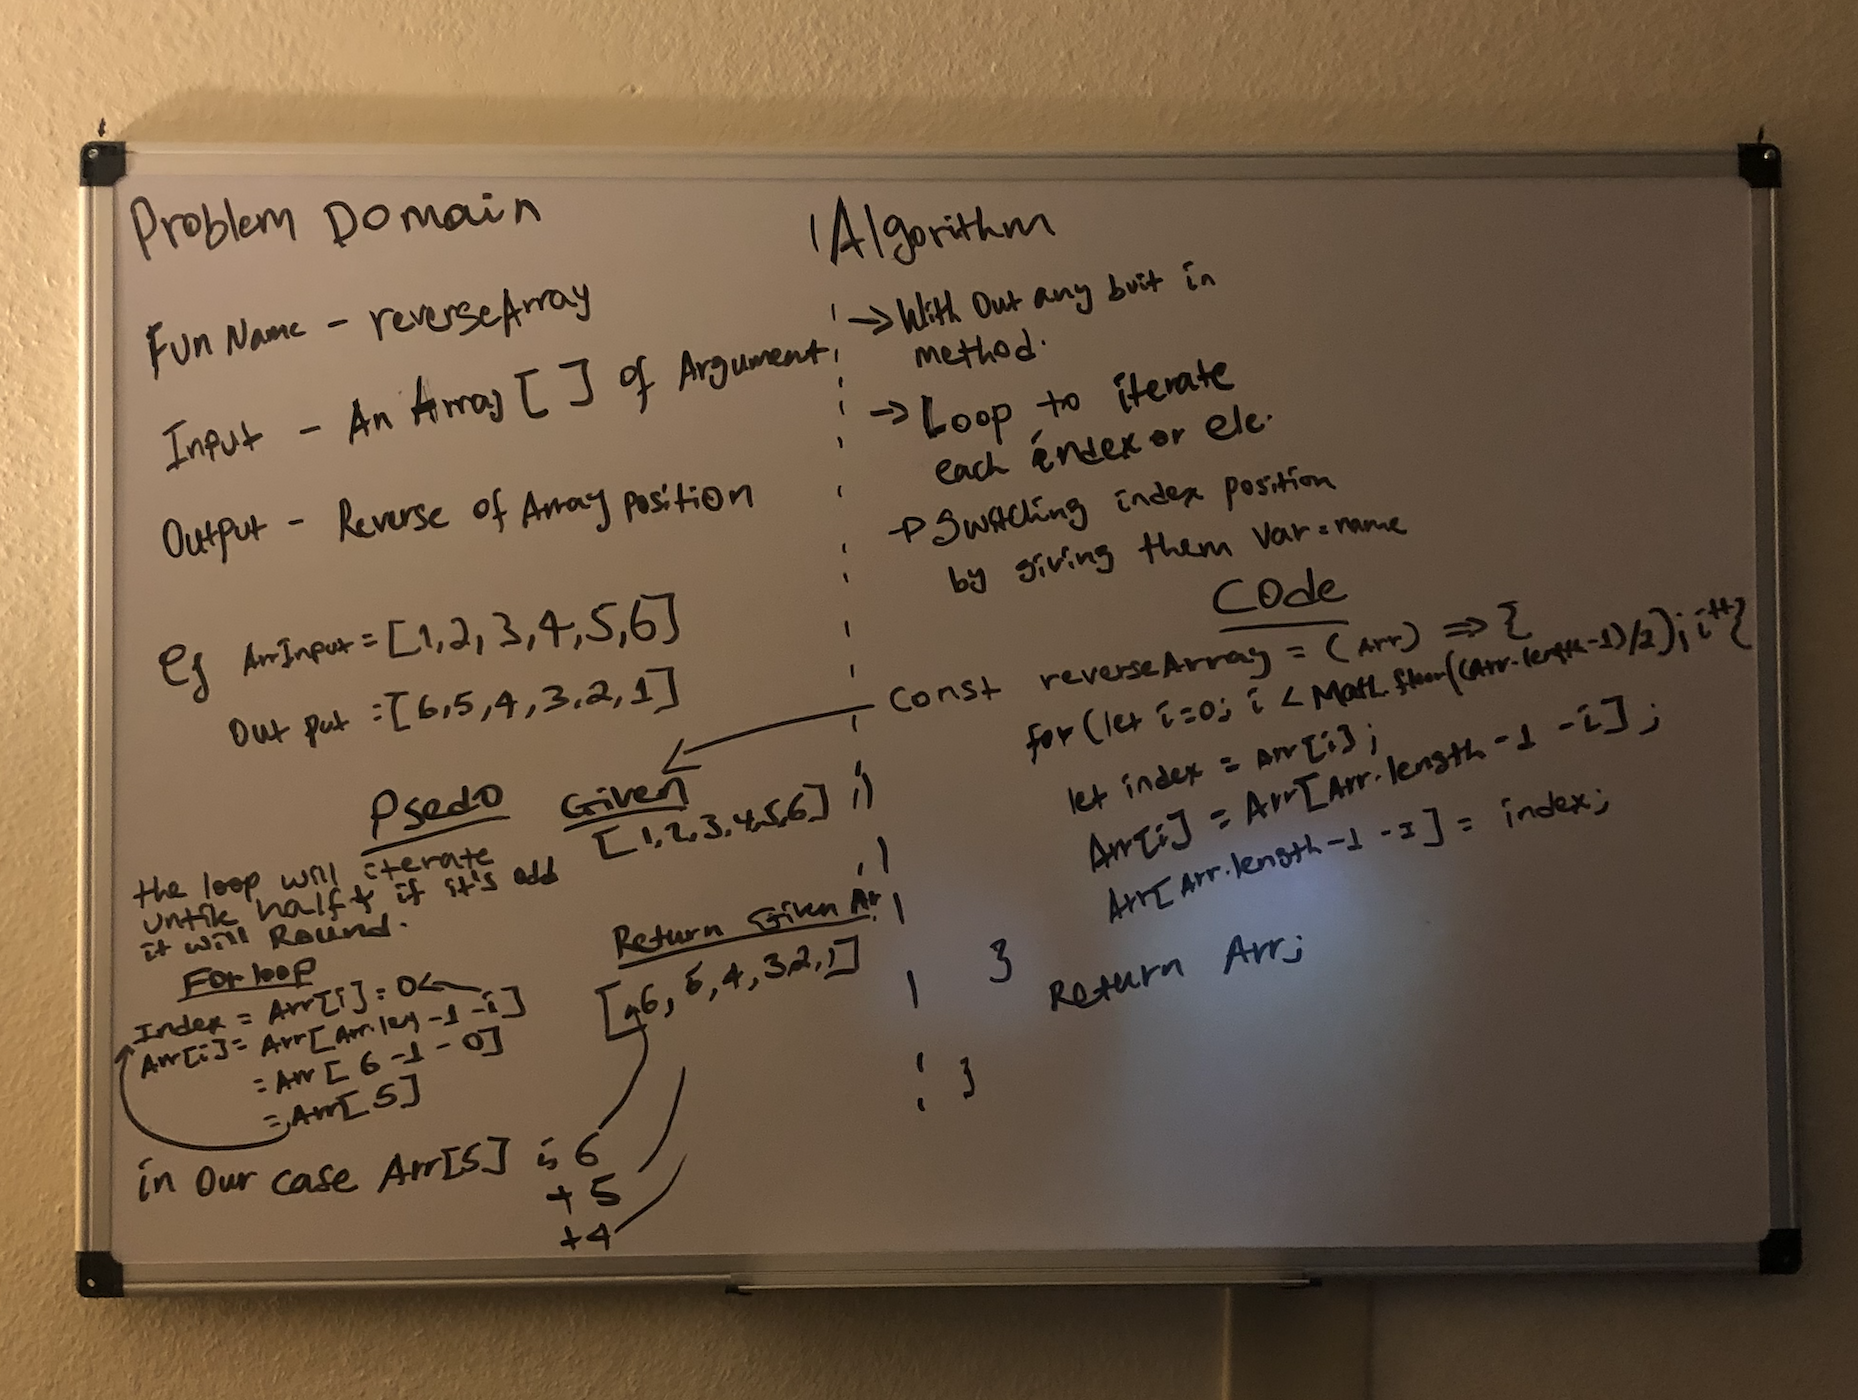 Problem Domain
Fun Name - reverseArray
Input - An Array [ ] of Argument
Output - Reverse of Array position
eg ArrInput = [1,2,3,4,5,6]
Out put = [6,5,4,3,2,1]
Psedo
the loop will iterate
untile half & if it's odd
it will Round.
For loop
Index = Arr[i] = 0
Arr[i] = Arr[Arr.len -1 -i]
= Arr[6 -1 - 0]
= Arr[5]
in Our case Arr[5] is 6
+ 5
+4
Given
[1,2,3,4,5,6]
Return Given Ar
[6, 5, 4, 3,2,1]
Algorithm
→ With Out any buit in
method.
→ Loop to iterate
each index or ele.
→ Switching index position
by giving them Var = name
Code
Const reverseArray = (Arr) => {
for (let i=0; i < Math.floor((Arr.length-1)/2); i++{
let index = Arr[i];
Arr[i] = Arr[Arr.length -1 -i];
Arr[Arr.length -1 -I] = index;
}
Return Arr;
}